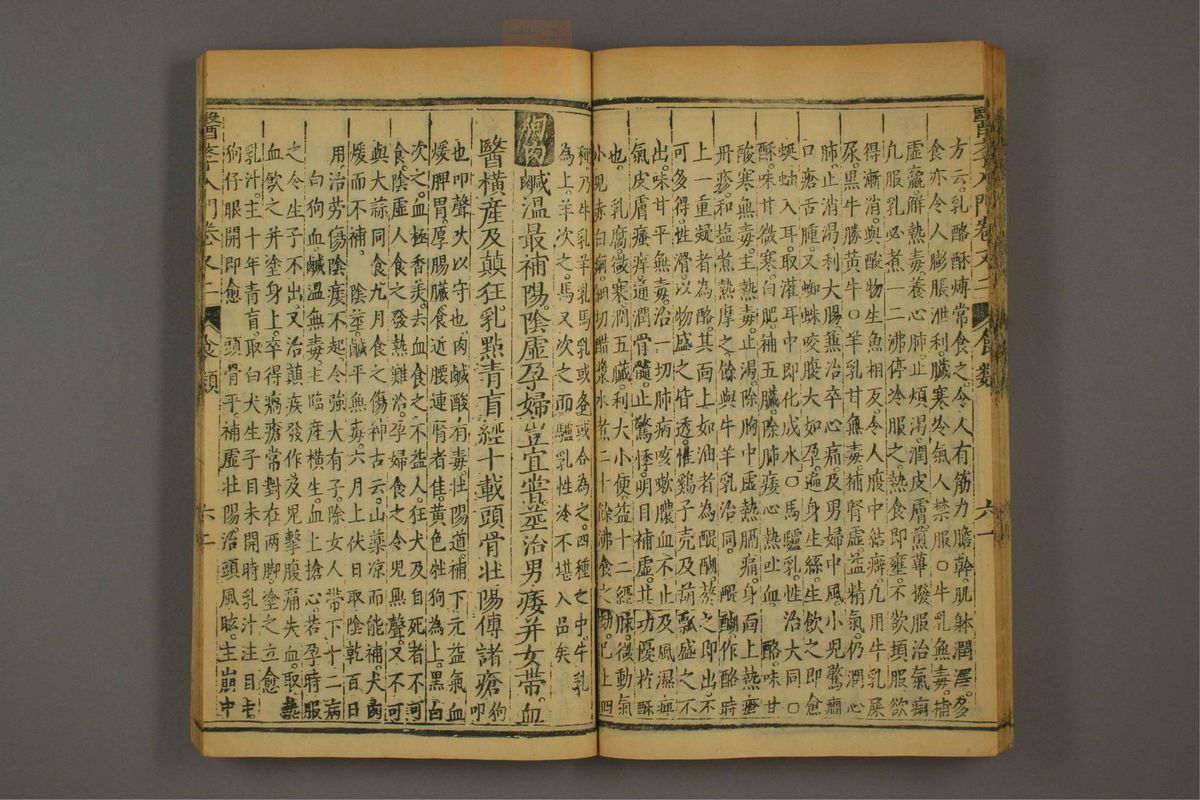 方云乳酪酥煿常食之令人有筋力膽幹肌躰潤澤多
食亦令人膨脹泄利臟寒冷氣人禁服〇牛乳無毒補
虛羸解熱毒養心肺止煩渴潤皮膚煎蓽撥服治氣痢
凡服乳必煮一二沸停冷服之熱食即壅不欲頓服欲
得漸消與酸物生魚相反令人腹中結癖凡用牛乳屎
尿黑牛勝黃牛〇羊乳甘無毒補腎虛益精氣仍潤心
肺止消渴利大腸兼治卒心痛及男婦中風小兒驚癇
口瘡舌腫又蜘蛛咬腹大如孕遍身生絲生飲之即愈
蚰蜒入耳取灌耳中即化成水〇馬驢乳性治大同〇
酥味甘微寒白肥補五臟除肺痿心熱吐血 酪味甘
酸寒無毒主熱毒止渴除胸中虛熱膈痛身面上熱瘡
丹疹和塩煮熱摩之餘與牛羊乳治同 醍醐作酪時
上一重凝者為酪其面上如油者為醍醐熬之即出不
可多得性滑以物盛之皆透惟鷄子壳及葫瓢盛之不
出味甘平無毒治一切肺病咳嗽膿血不止及風濕痹
氣皮膚瘙痒通潤骨髓止驚悸明目補虛其功優於酥
也 乳腐微寒潤五臟利大小便益十二經脉微動氣
小兒赤白痢細切醋漿水煮二十餘沸食之効已上四
種乃牛乳羊乳馬乳或各或合為之四種之中牛乳
為上羊次之馬又次之而驢乳性冷不堪入品矣
狗肉鹹溫最補陽陰虛孕婦豈宜嘗莖治男痿并女帶血
醫橫產及顛狂乳點青盲經十載頭骨壯陽傅諸瘡 狗叩
也叩聲吠以守也肉鹹酸有毒壯陽道補下元益氣血
煖脾胃厚腸臟食近腰連腎者佳黃色牡狗為上黑白
次之血極香美去血食之不益人狂犬及自死者不可
食陰虛人食之發熱難治孕婦食之令兒無聲又不可
與大蒜同食九月食之傷神古云山藥凉而能補犬肉
煖而不補 陰莖鹹平無毒六月上伏日取陰乾百日
用治勞傷陰痿不起令強大有子除女人帶下十二病
白狗血鹹溫無毒主臨產橫生血上搶心若孕時服
之令生子不出又治顛疾發作及鬼擊腹痛失血取熱
血飲之并塗身上卒得癘瘡常對在两脚塗之立愈
乳汁主十年青盲取白犬生子目未開時乳汁注目中
狗仔眼開即愈 頭骨平補虛壯陽治頭風眩主崩中
醫學入門卷又二 食類 六一
醫學入門卷又二 食類 六二